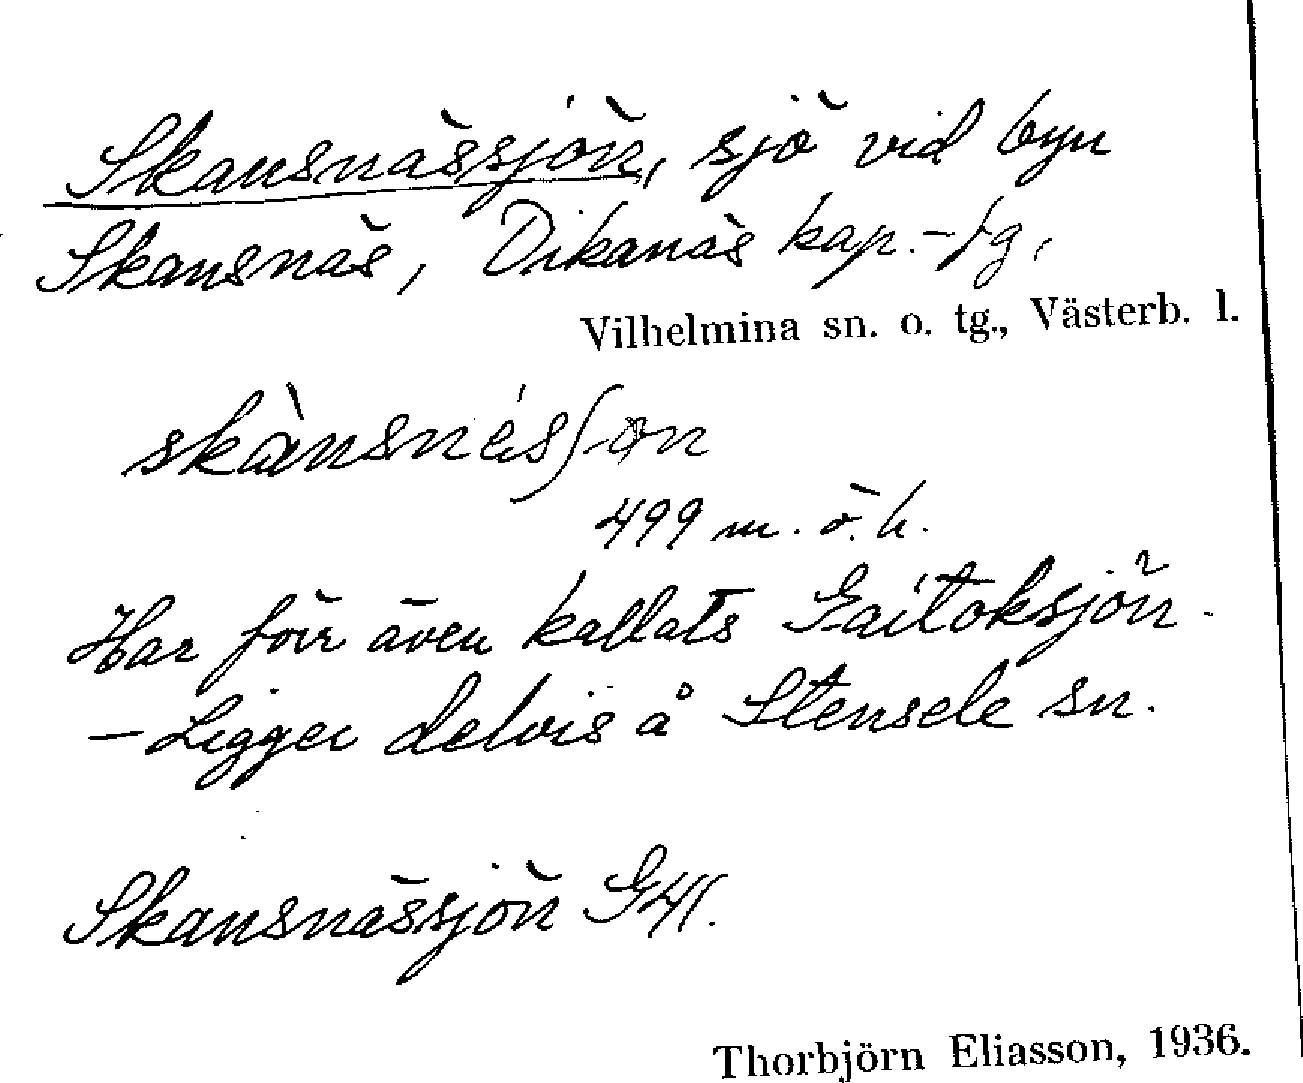 Skansnässjön, sjö vid byn
Skansnäs, Dikanäs kap.-fg,
Vilhelmina sn. o. tg., Västerb. l.
skànsnésʃɵn
499 m. ö. h.
Har förr även kallats Gaitoksjön.
- Ligger delvis å Stensele sn.
Skansnässjön G41.
Thorbjörn Eliasson, 1936.